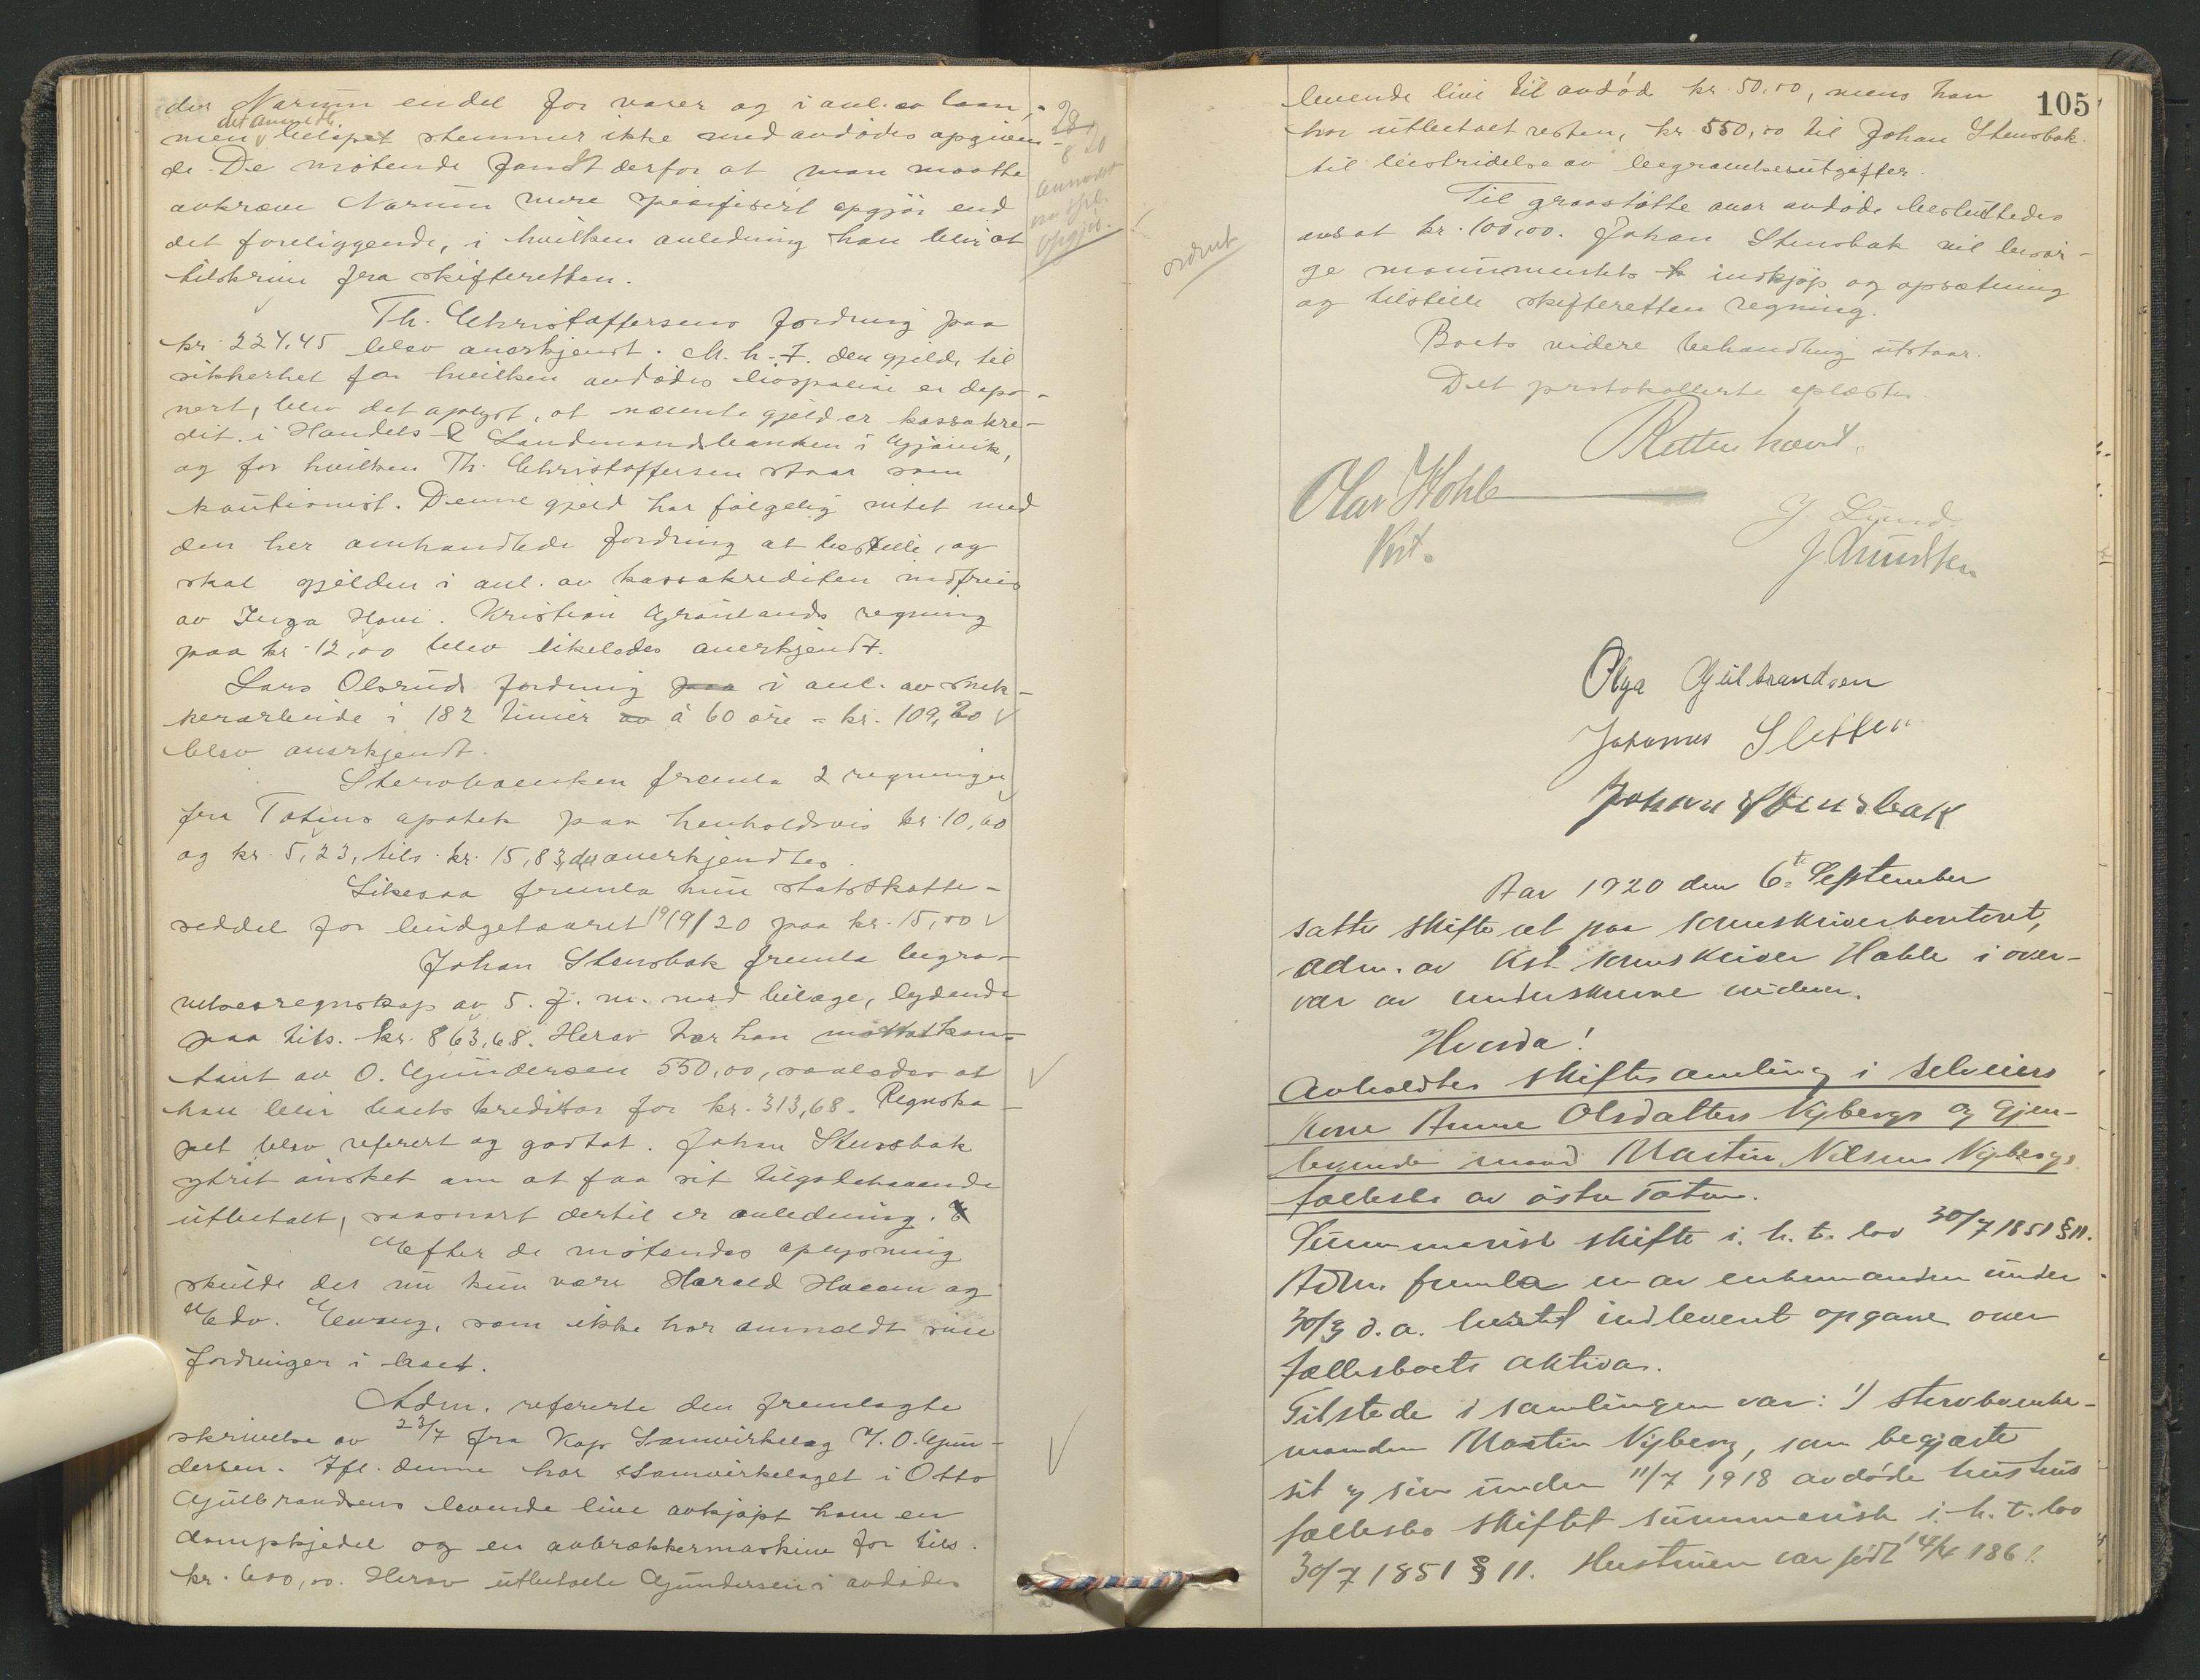 der Narum endel for varer og i anl. av laan,
det anmeldte
men beløpet stemmer ikke med avdødes opgiven-
de. De møtende fandt derfor at man maatte
avkræve Narum mere spesifisert opgjør end
det foreliggende, i hvilken anledning han blir at
tilskrive fra skifteretten.
Th. Christoffersens fordring paa
kr. 224,45 blev anerkjendt. M. h. t. den gjeld, til
sikkerhet for hvilken avdødes livspolise er depo-
nert, blev det oplyst, at nævnte gjeld er kassakre-
dit i Handels & Landmandsbanken i Gjøvik,
og for hvilken Th. Christoffersen staar som
kautionist. Denne gjeld har følgelig intet med
den her omhandlede fordring at bestille, og
skal gjelden i anl. av kassakrediten indfries
av Inga Hovi. Kristian Grønlands regning
paa kr. 12,00 blev likeledes anerkjendt.
Lars Olsruds fordring paa i anl. av snek-
kerarbeide i 182 timer av à 60 øre = kr. 109,20
blev anerkjendt.
Stervboenken fremla 2 regninger
fra Totens apotek paa henholdsvis kr. 10,60
og kr. 5,23, tils. kr. 15,83, der anerkjendtes.
Likesaa fremla hun statsskatte-
seddel for budgetaaret 1919/20 paa kr. 15,00
Johan Stensbak fremla begra-
velsesregnskap av 5. f. m. med bilage, lydende
paa tils. kr. 863,68. Herav har han mottat kon-
tant av O. Gundersen 550,00, saaledes at
han blir boets kreditor for kr. 313,68. Regnska-
pet blev referert og godtat. Johan Stensbak
ytret ønsket om at faa sit tilgodehavende
utbetalt, saasnart dertil er anledning.
Efter de møtendes oplysning
skulde det nu kun være Harald Hoeam og
Edv. som ikke har anmeldt sine
fordringer i boet.
Adm. refererte den fremlagte
skrivelse av 23/7 fra Kap Samvirkelag v. O. Gun-
dersen. Ifl. denne har Samvirkelaget i Otto
Gulbrandsens levende live avkjøpt ham en
dampkjedel og en avbrækkermaskine for tils.
kr. 600,00. Herav utbetalte Gundersen i avdødes
28/8 20
anmodet
om spec.
opgjør.
ordnet
105
levende live til avdød kr. 50,00, mens han
har utbetalt resten, kr. 550,00 til Johan Stensbak
til bestridelse av begravelsesutgifter.
Til gravstøtte over avdøde besluttedes
avsat kr. 100,00. Johan Stensbak vil besør-
ge monumentets indkjøp og opsætning
og tilstille skifteretten regning.
Boets videre behandling utstaar.
Det protokollerte oplæstes.
Retten hævet.
Olav Hohle
Kst.
J. Lund.
J. Knudsen
Olga Gulbrandsen
Johannes Sletten
Johan Stensbak
Aar 1920 den 6te September
sattes skifteret paa sorenskriverkontoret,
adm. av kst. sorenskriver Hohle i over-
vær av underskrevne vidner.
Hvorda!
Avholdtes skiftesamling i selveiers
kone Anne Olsdatters Nyberg og gjen-
levende mand Martin Nilsen Nybergs
fællesbo av østre Toten.
Summarisk skifte i. h. t. lov 30/7 1851 § 11.
Adm. fremla en av enkemanden under
30/3 d. a. hertil indlevert opgave over
fællesboets aktiva.
Tilstede i samlingen var: 1) stervboenke-
manden Martin Nyberg, som begjærte
sit og sin under 11/7 1918 avdøde hustrus
fællesbo skiftet summarisk i. h. t. lov
30/7 1851 § 11. Hustruen var født 14/4 1861.